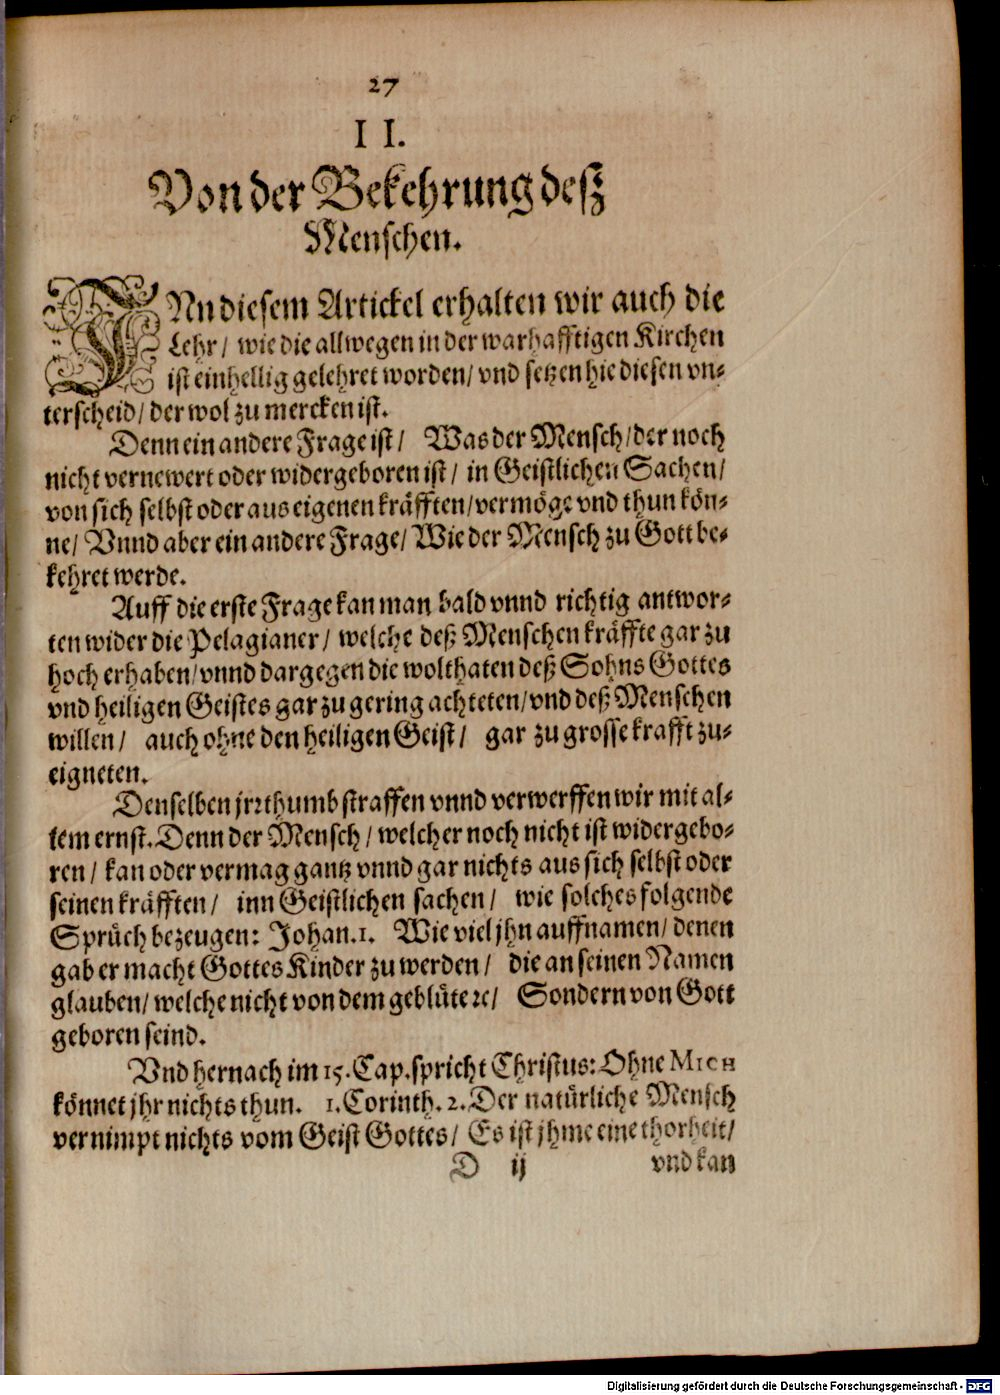 27
II.
Von der Bekehrung deß
Menschen.
INn diesem Artickel erhalten wir auch die
Lehr/ wie die allwegen in der warhafftigen Kirchen
ist einhellig gelehret worden/ vnd setzen hie diesen vn-
terscheid/ der wol zu mercken ist.
Denn ein andere Frage ist/ Was der Mensch/ der noch
nicht vernewert oder widergeboren ist/ in Geistlichen Sachen/
von sich selbst oder aus eigenen kräfften/ vermöge vnd thun kön-
ne/ Vnnd aber ein andere Frage/ Wie der Mensch zu Gott be-
kehret werde.
Auff die erste Frage kan man bald vnnd richtig antwor-
ten wider die Pelagianer/ welche deß Menschen kräffte gar zu
hoch erhaben/ vnnd dargegen die wolthaten deß Sohns Gottes
vnd heiligen Geistes gar zu gering achteten/ vnd deß Menschen
willen/ auch ohne den heiligen Geist/ gar zu grosse krafft zu-
eigneten.
Denselben jrrthumb straffen vnnd verwerffen wir mit al-
lem ernst. Denn der Mensch/ welcher noch nicht ist widergebo-
ren/ kan oder vermag gantz vnnd gar nichts aus sich selbst oder
seinen kräfften/ inn Geistlichen sachen/ wie solches folgende
Sprüch bezeugen: Johan. 1. Wie viel jhn auffnamen/ denen
gab er macht Gottes Kinder zu werden/ die an seinen Namen
glauben/ welche nicht von dem geblüte ꝛc/ Sondern von Gott
geboren seind.
Vnd hernach im 15. Cap. spricht Christus: Ohne MICH
könnet jhr nichts thun. 1. Corinth. 2. Der natürliche Mensch
vernimpt nichts vom Geist Gottes/ Es ist jhme eine thorheit/
D ij vnd kan
Digitalisierung gefördert durch die Deutsche Forschungsgemeinschaft - DFG